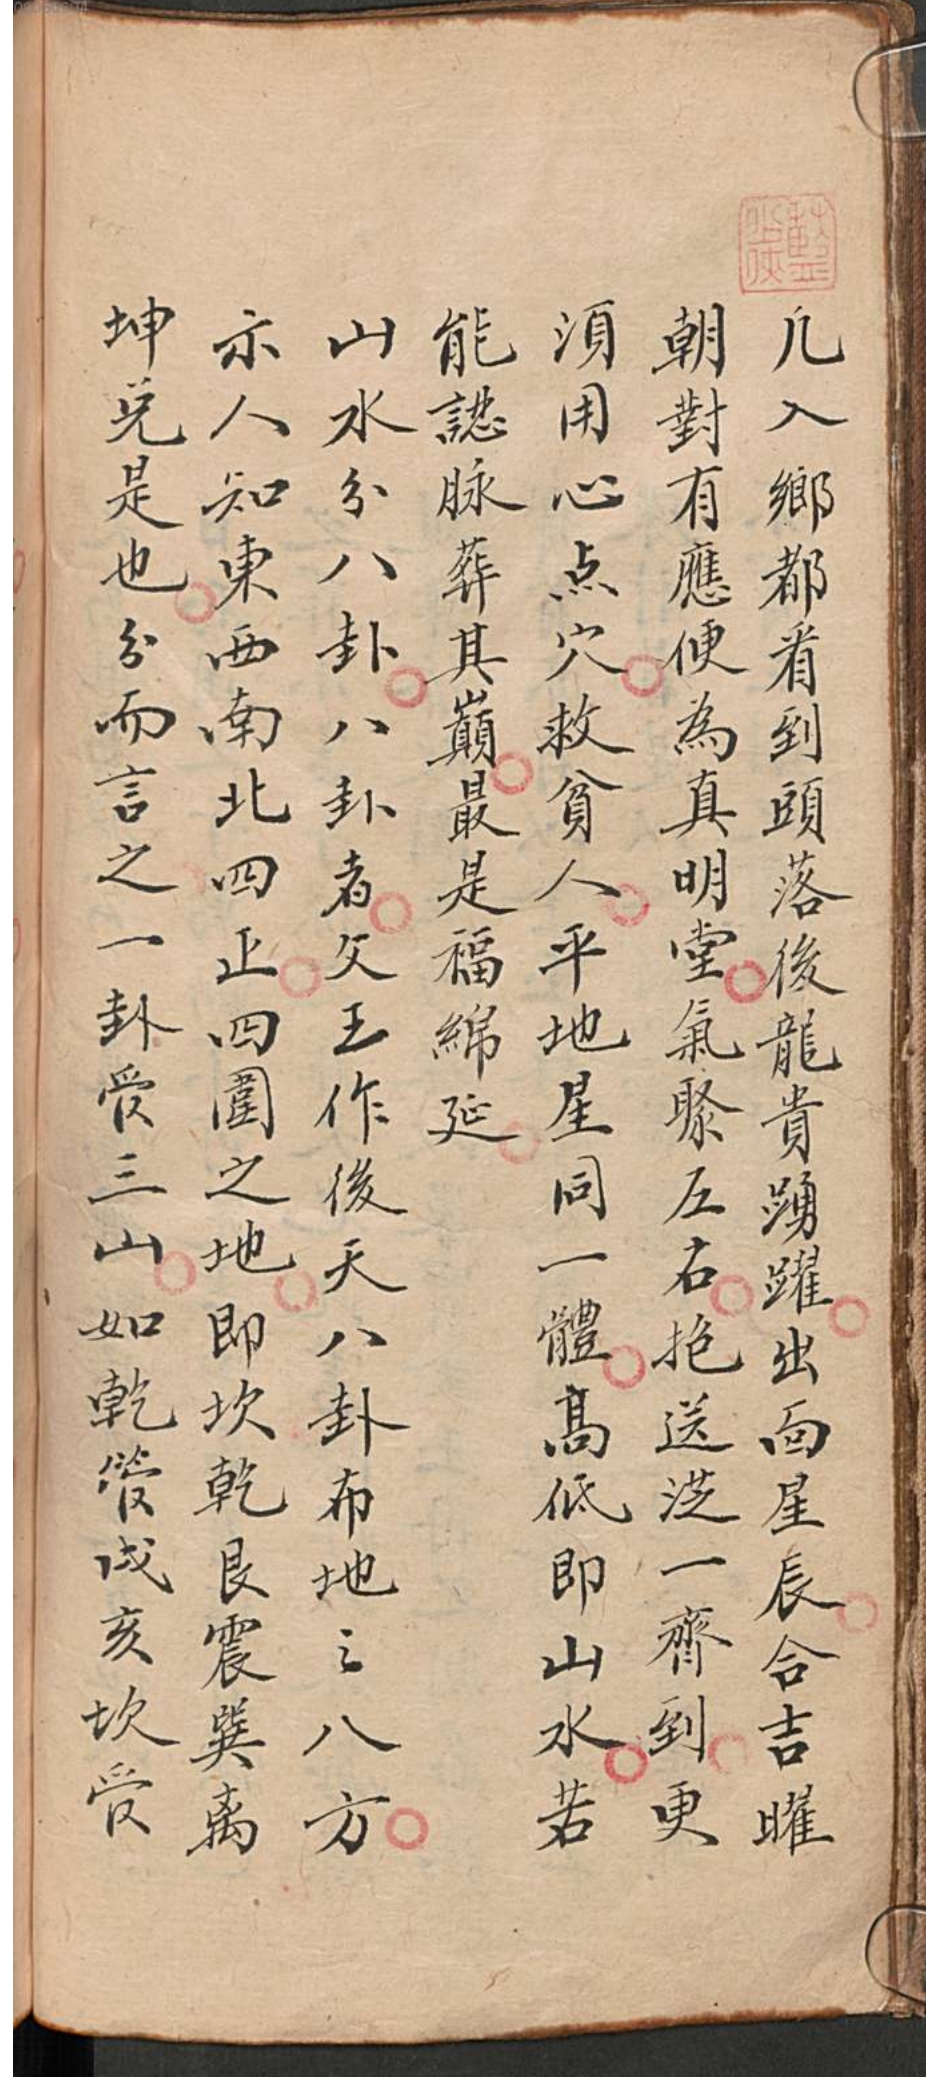 凢入鄉都看到頭落後龍貴踴躍出面星辰合吉曜
朝對有應便為真明堂氣聚左右抱送迢一齊到更
須用心点穴救貧人平地星同一體髙低即山水若
能認脉葬其巔最是福綿延
山水分八卦八卦者文王作後天八卦布地之八方
示人知東西南北四正四圍之地即坎乾艮震巽离
坤兌是也分而言之一卦受三山如乾管戌亥坎受